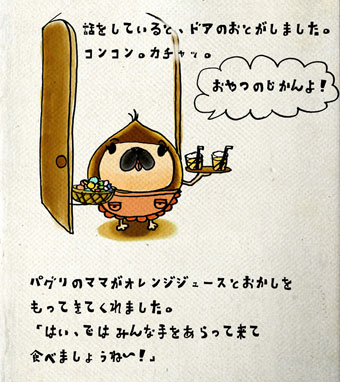 話をしていると、ドアのおとがしました。
コンコン。カチャッ。
おやつのじかんよ！
パグリのママがオレンジジュースとおかしを
もってきてくれました。
「はい、では みんな手をあらって来て
食べましょうね〜！」